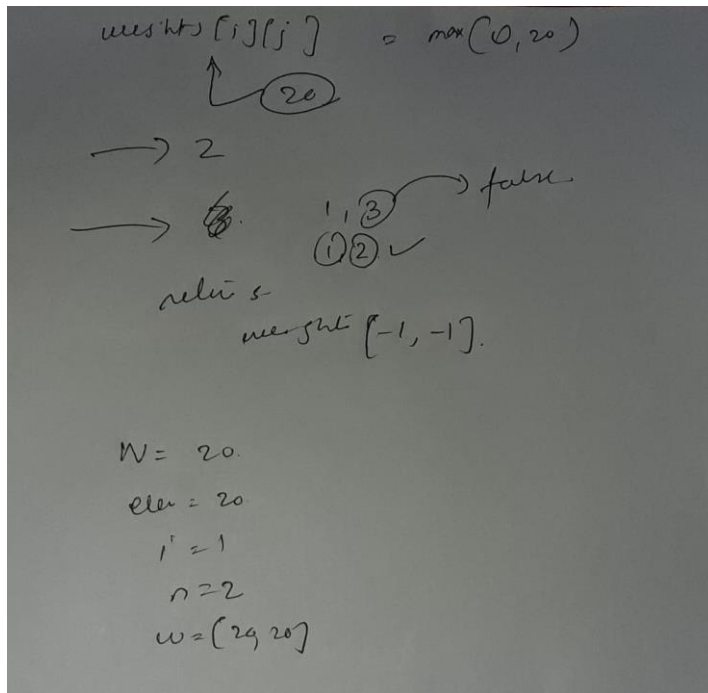 weights[i][j] = max(0, 20)
20
→ 2
→ 1, 3 → false
1 2 ✓
return
weight[-1, -1].
W = 20.
ele = 20.
i = 1
n = 2
w = [20, 20]